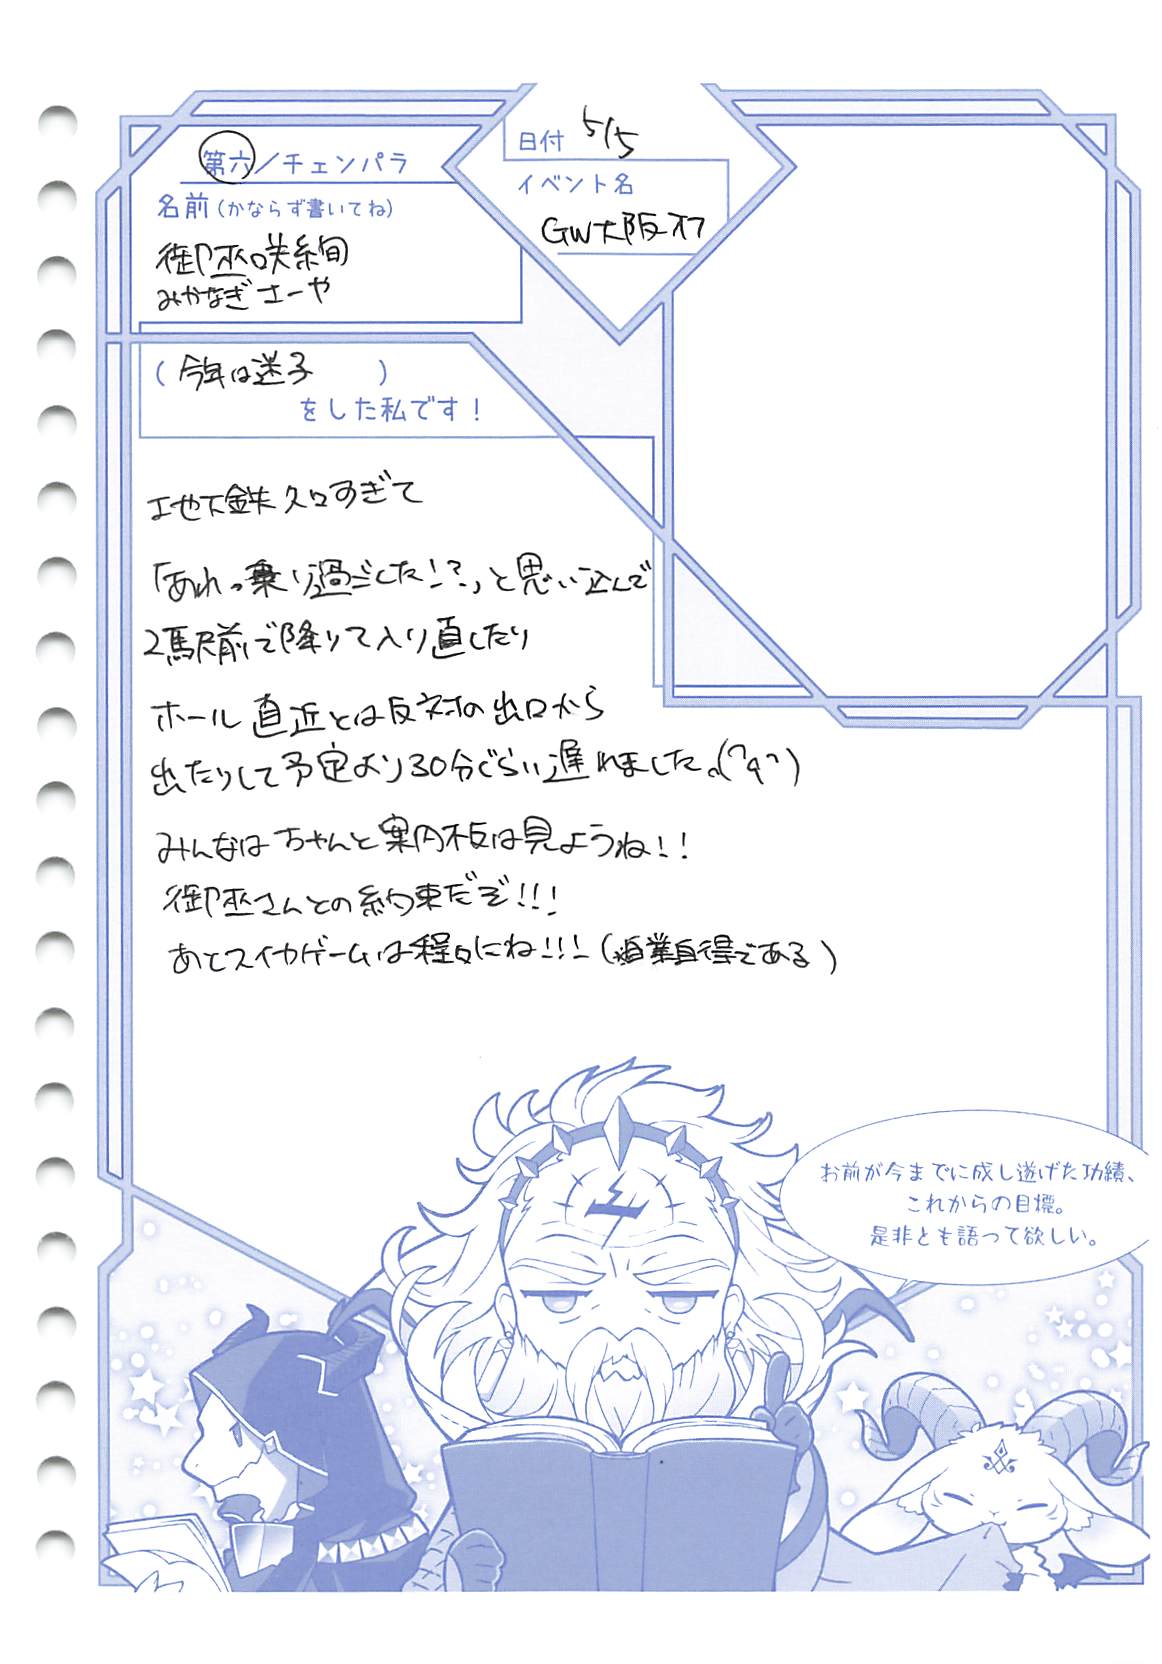 第六/チェンパラ
名前(かならず書いてね)
御巫咲絢
みかなぎさーや
日付 5/5
イベント名
GW大阪オフ
(今年は迷子)
をした私です!
地下鉄久々すぎて
「あれっ乗り過ごした!?」と思い込んで
2駅前で降りて入り直したり
ホール直近とは反対の出口から
出たりして予定より30分ぐらい遅れました。(^q^)
みんなはちゃんと案内板は見ようね!!
御巫さんとの約束だぞ!!!
あとスイカゲームは程々にね!!!(自業自得である)
お前が今までに成し遂げた功績、
これからの目標。
是非とも語って欲しい。